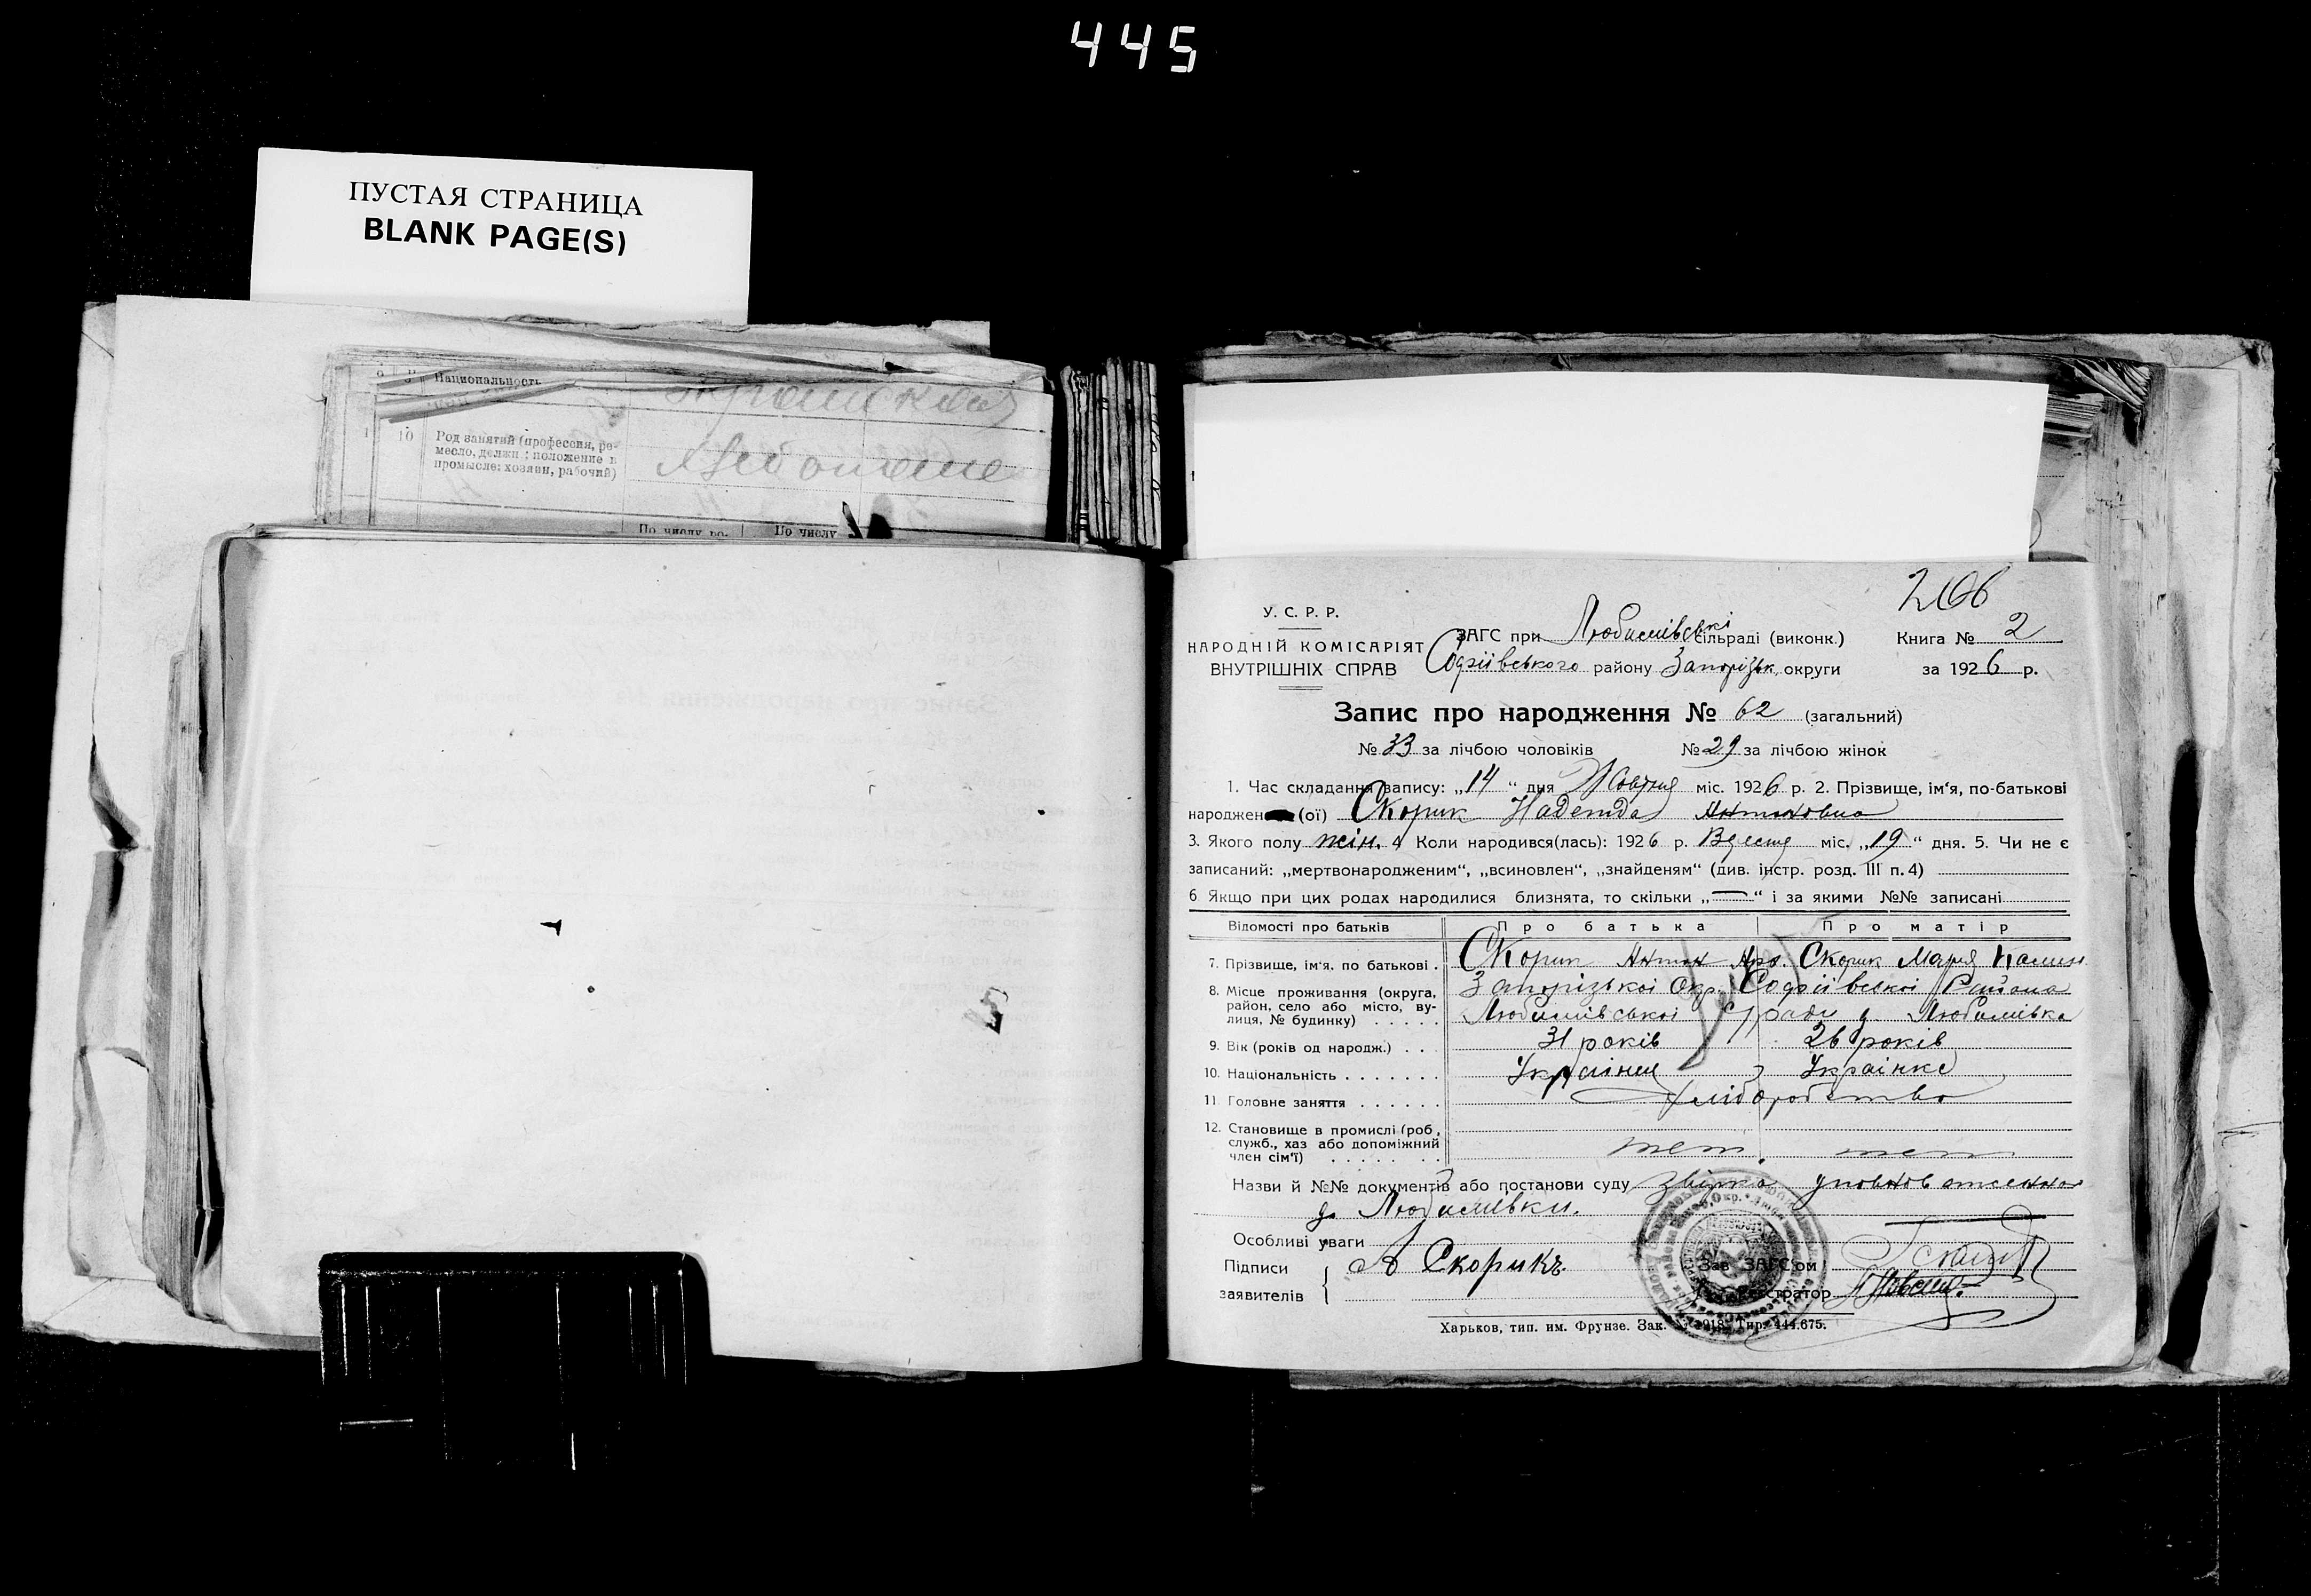 445
ПУСТАЯ СТРАНИЦА
BLANK PAGE(S)
Национальность
10 Род занятий (профессия, ре-
месло, должн.; положение в
промысле: хозяин, рабочий)
По числу ро- По числу
206
У. С. Р. Р.
НАРОДНІЙ КОМІСАРІЯТ
ВНУТРІШНІХ СПРАВ
ЗАГС при Любимівські сільраді (виконк.) Книга № 2
Софіівського району Запорізьк. округи за 1926 р.
Запис про народження № 62 (загальний)
№ 33 за лічбою чоловіків № 29 за лічбою жінок
1. Час складання запису: „14“ дня Жовтня міс. 1926 р. 2. Прізвище, ім'я, по-батькові
народжен (ої) Скорик Надежда Антоновна
3. Якого полу жін. 4 Коли народився(лась): 1926 р. міс. „19“ дня. 5. Чи не є
записаний: „мертвонародженим“, „всиновлен“, „знайденям“ (див. інстр. розд. III п. 4)
6 Якщо при цих родах народилися близнята, то скільки „—“ і за якими №№ записані
Відомості про батьків Про батька Про матір
7. Прізвище, ім'я, по батькові . Скорик Антон Скорик Мария
8. Місце проживання (округа, район, село або місто, ву- лиця, № будинку) Запорізької Окр. Софіівської Района
Любимівської С/ради Любимівка
9. Вік (років од народж.) . . . 31 років 26 років
10. Національність . . . . . . . Українец Українка
11 Головне заняття . . . . . . Хліборобство
12. Становище в промислі (роб.,
служб., хаз або допоміжний
член сім'ї) . . . . . . .
Назви й №№ документів або постанови суду
Любимівки.
Особливі уваги
Підписи А Скорикъ Зав ЗАГС'ом
заявителів Реєстратор
Харьков, тип. им. Фрунзе. Зак. Тир. 444.675.